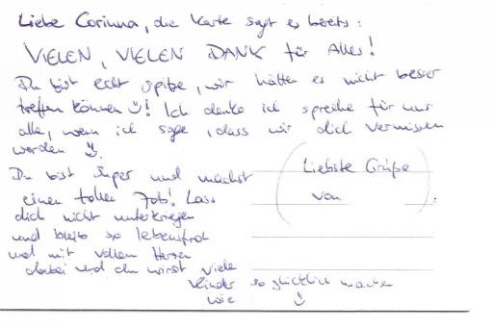 Liebe Corinna, die Karte sagt es bereits:
VIELEN, VIELEN DANK für Alles!
Du bist echt spitze, wir hätten es nicht besser
treffen können! Ich denke ich spreche für uns
alle, wenn ich sage, dass wir dich vermissen
werden
Du bist super und machst
einen tollen Job! Lass
dich nicht unterkriegen
und bleib so lebensfroh
und mit vollem Herzen
dabei und du wirst viele
Kinder so glücklich machen
wie
Liebste Grüße
von